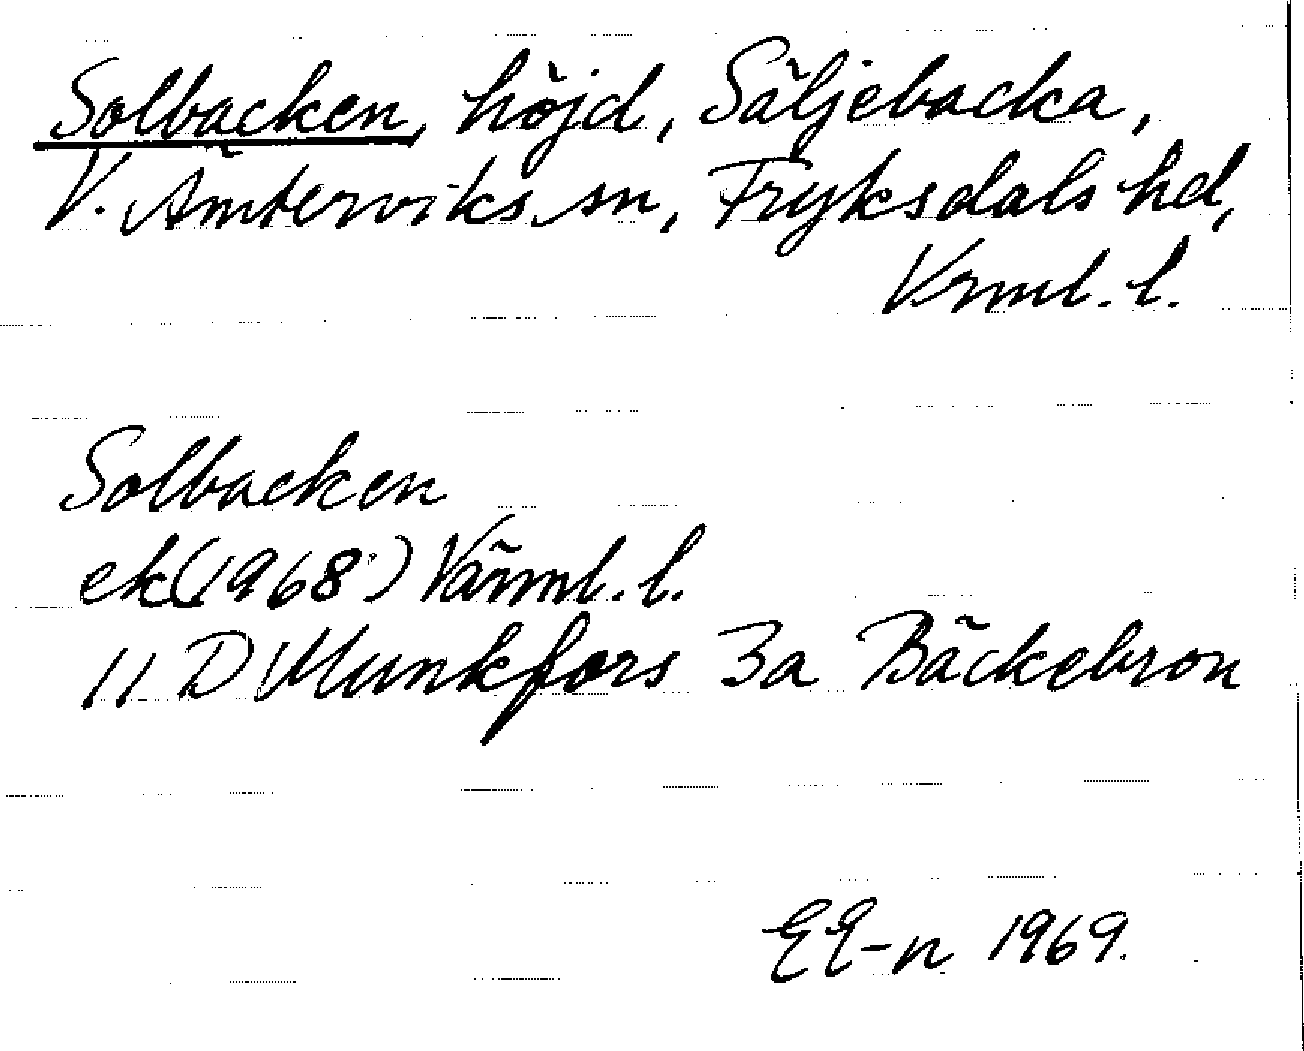 Solbacken, höjd, Säljebacka,
V. Ämterviks sn, Fryksdals hd,
Vrml. l.
Solbacken
ek (1968) Värml. l.
11 D Munkfors 3a Bäckebron
EE-n 1969.